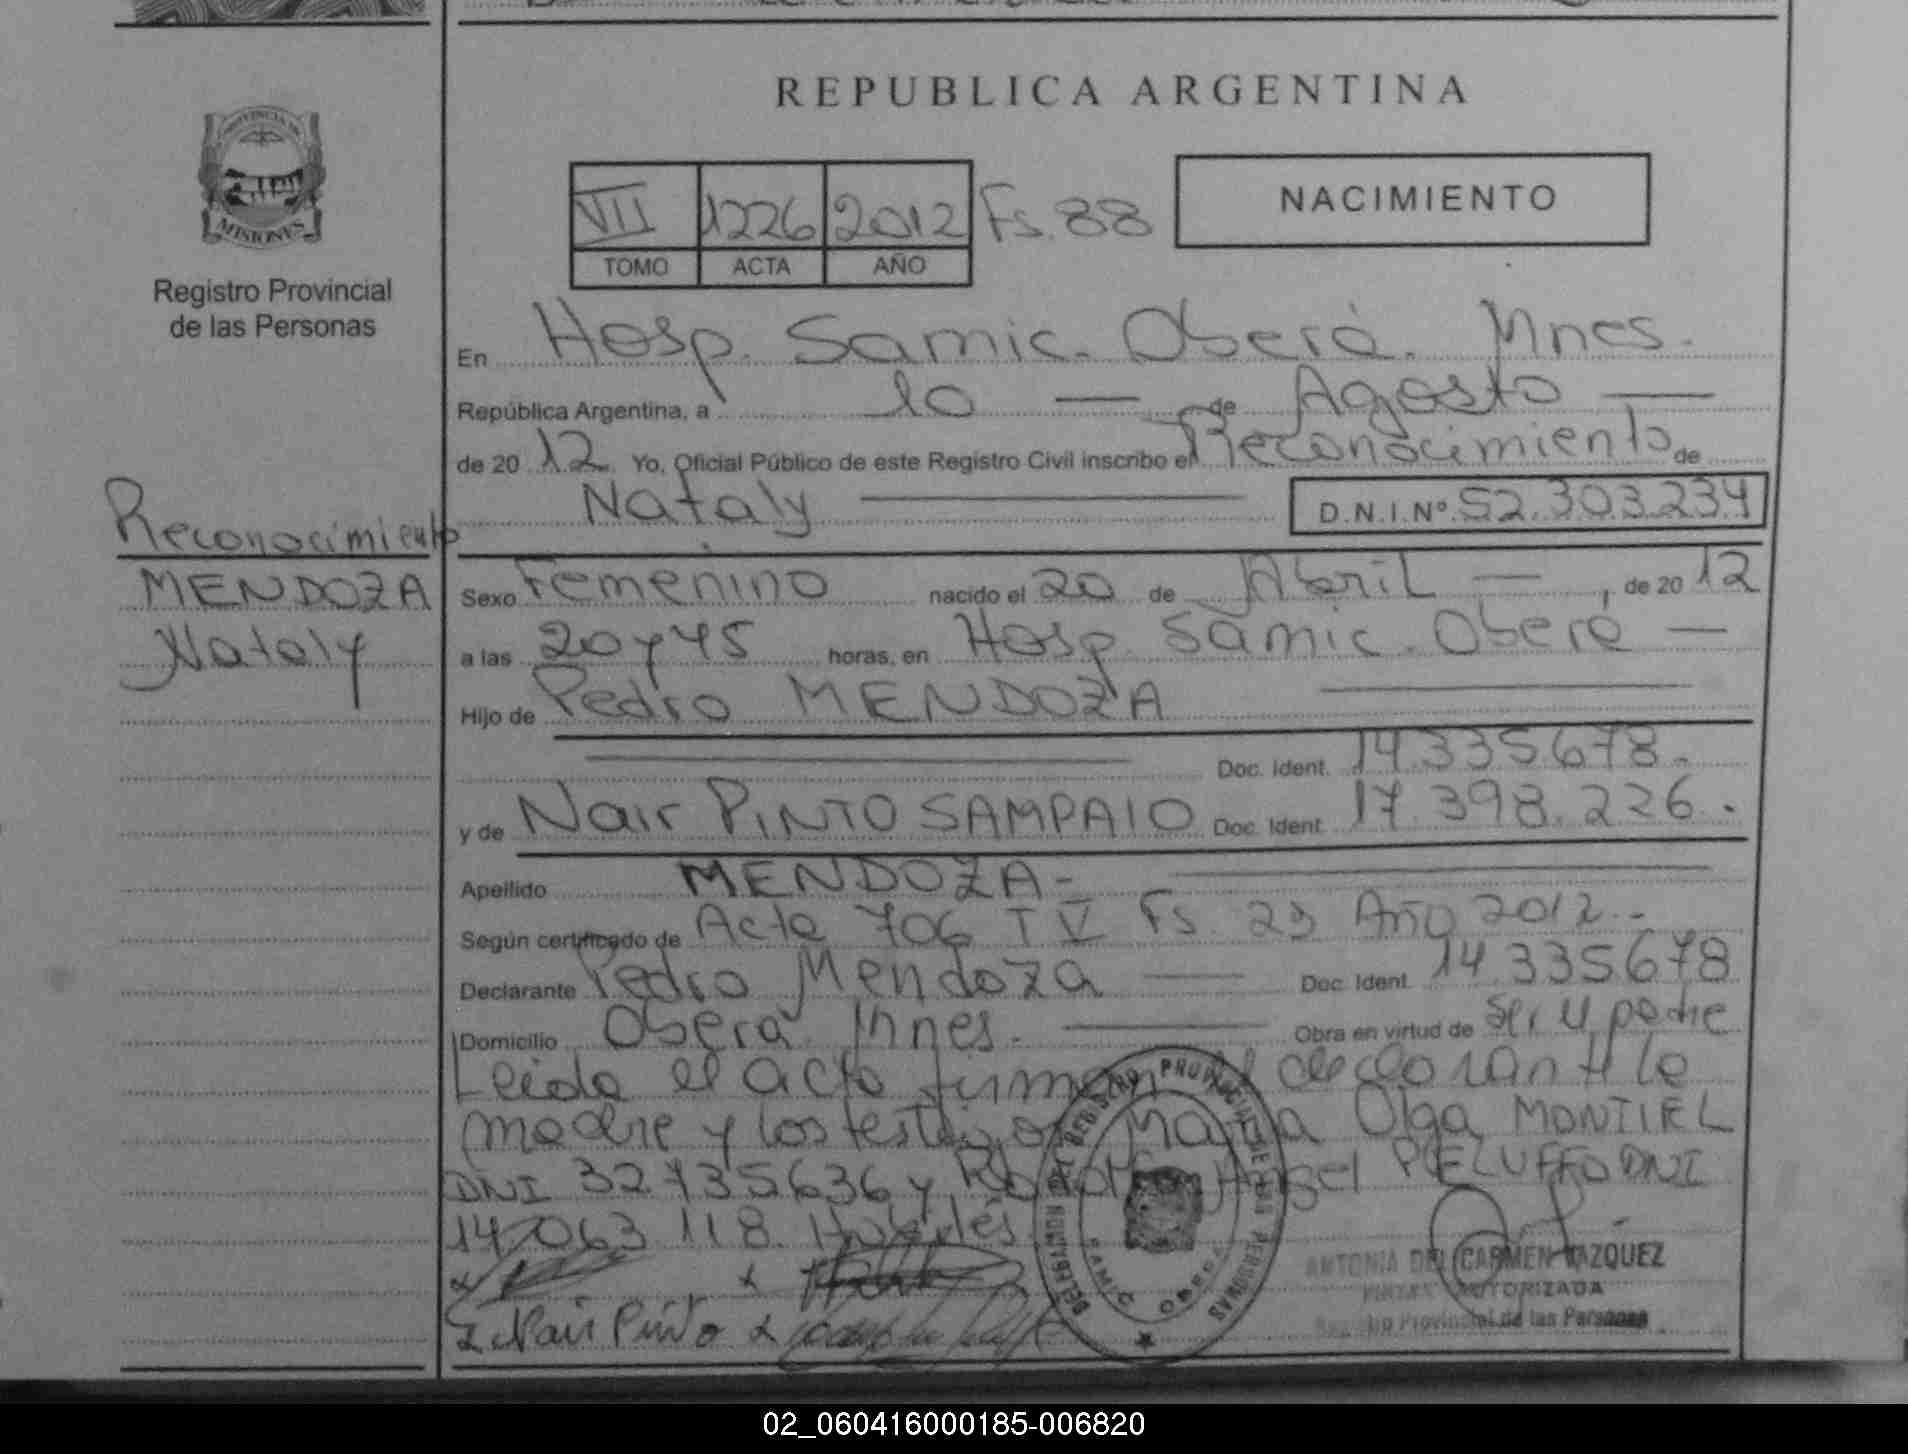 REPUBLICA ARGENTINA
PROVINCIA DE
MISIONES
Registro Provincial
de las Personas
VII 1226 2012 Fs. 88
TOMO ACTA AÑO
NACIMIENTO
En Hosp. Samic. Oberá. Mnes.
República Argentina, a 10 — de Agosto —
de 20 12 Yo, Oficial Público de este Registro Civil inscribo el Reconocimiento de
Nataly — D.N.I.Nº 52.303.234
Reconocimiento
MENDOZA
Nataly
Sexo Femenino nacido el 20 de Abril —, de 20 12
a las 20 y 45 horas, en Hosp. Samic. Oberá —
Hijo de Pedro MENDOZA —
— Doc. Ident. 14335678.
y de Nair PINTO SAMPAIO Doc. Ident. 17.398.226.
Apellido MENDOZA- —
Según certificado de Acta 706 T V Fs. 23 Año 2012.-
Declarante Pedro Mendoza — Doc. Ident. 14.335678
Domicilio Oberá Mnes. — Obra en virtud de ser el padre
Leida el acta firman el declarante la
madre y los testigos Maria Olga MONTIEL
DNI 32735636 y Angel PELUFFO DNI
14.063.118
x x
x Nair Pinto x
DELEGACION DEL REGISTRO PROVINCIAL DE LAS PERSONAS
SAMIC OBERA
ANTONIA DEL CARMEN VAZQUEZ
AUTORIZADA
Registro Provincial de las Personas
02_060416000185-006820